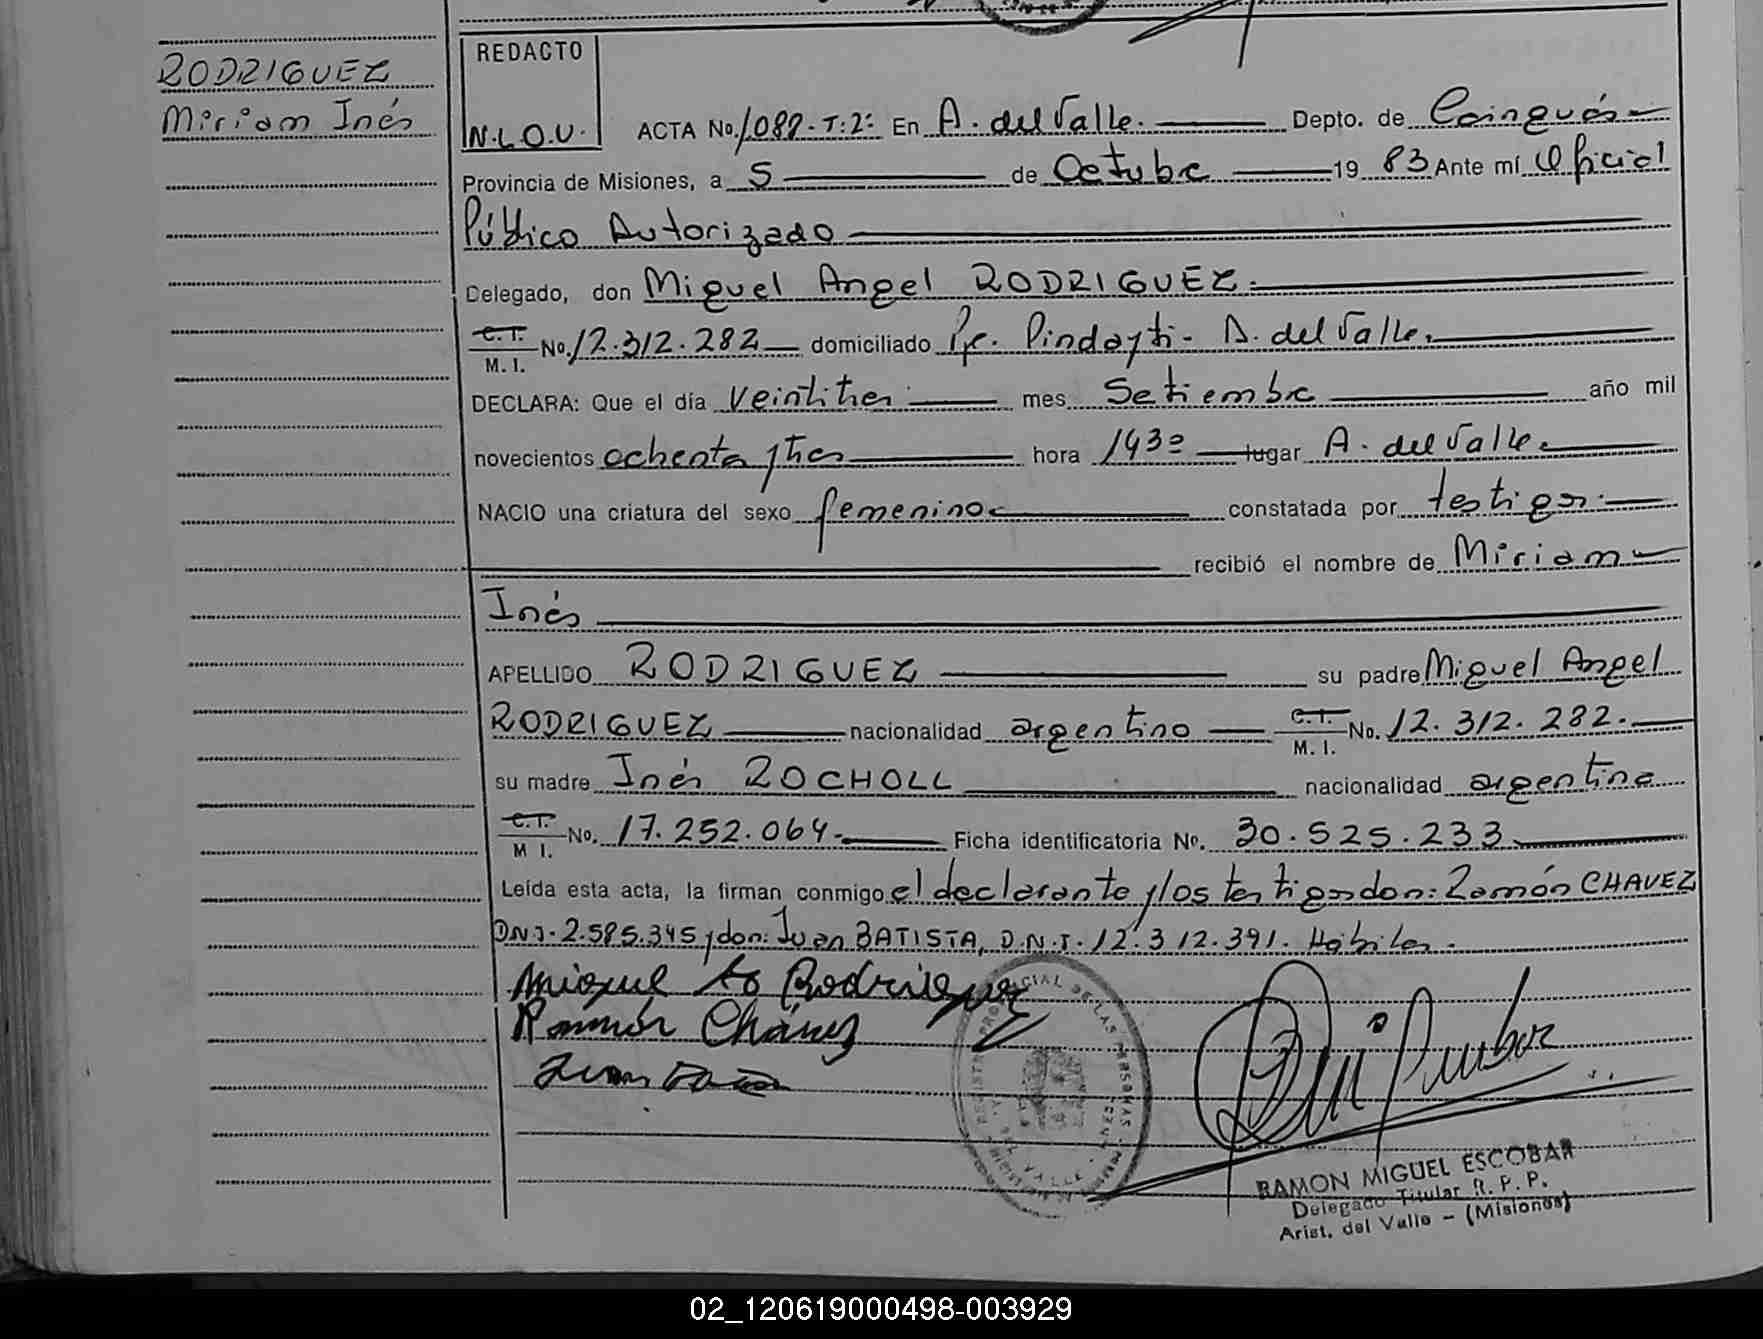 RODRIGUEZ
Miriam Inés
REDACTO
N.L.O.U.
ACTA No. 1082-T:2º En A. del Valle. Depto. de Cainguás
Provincia de Misiones, a 5 de Octubre 19 83 Ante mí Oficial
Público Autorizado
Delegado, don Miguel Angel RODRIGUEZ.
C.I. M. I. No. 12.312.282 domiciliado Pje. Pindayti - A. del Valle.
DECLARA: Que el día veintitres mes Setiembre año mil
novecientos ochenta y tres hora 1430 lugar A. del Valle.
NACIO una criatura del sexo femenino constatada por testigos.
recibió el nombre de Miriam
Inés
APELLIDO RODRIGUEZ su padre Miguel Angel
RODRIGUEZ nacionalidad argentino C.I. M. I. No. 12.312.282.
su madre Inés ROCHOLL nacionalidad argentina
C.I. M I. No. 17.252.064. Ficha identificatoria No. 30.525.233
Leída esta acta, la firman conmigo el declarante y los testigos don: Ramón CHAVEZ
D.N.I. 2.585.345 y don: Juan BATISTA, D.N.I. 12.312.391. Hábiles.
Miguel A Rodriguez
Ramón Chávez
Juan
RAMON MIGUEL ESCOBAR
Delegado Titular R. P. P.
Arist. del Valle - (Misiones)
02_120619000498-003929